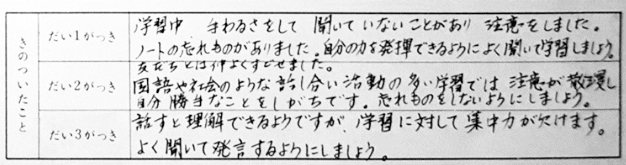 きのついたこと
だい1がっき
学習中 手わるさをして 聞いていないことがあり 注意をしました。
ノートの忘れものがありました。自分の力を発揮できるようによく聞いて学習しましょう。
友だちとは仲よくすごせました。
だい2がっき
国語や社会のような話し合い活動の多い学習では 注意が散漫し
自分勝手なことをしがちです。忘れものをしないようにしましょう。
だい3がっき
話すと理解できるようですが、学習に対して集中力が欠けます。
よく聞いて発言するようにしましょう。